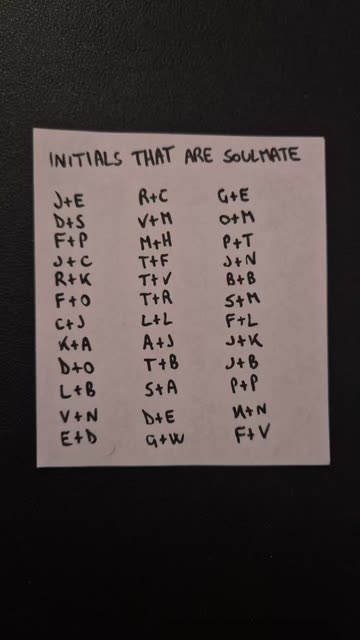 INITIALS THAT ARE SOULMATE
J+E R+C G+E
D+S V+M O+M
F+P M+H P+T
J+C T+F J+N
R+K T+V B+B
F+O T+R S+M
C+J L+L F+L
K+A A+J J+K
D+O T+B J+B
L+B S+A P+P
V+N D+E N+N
E+D G+W F+V